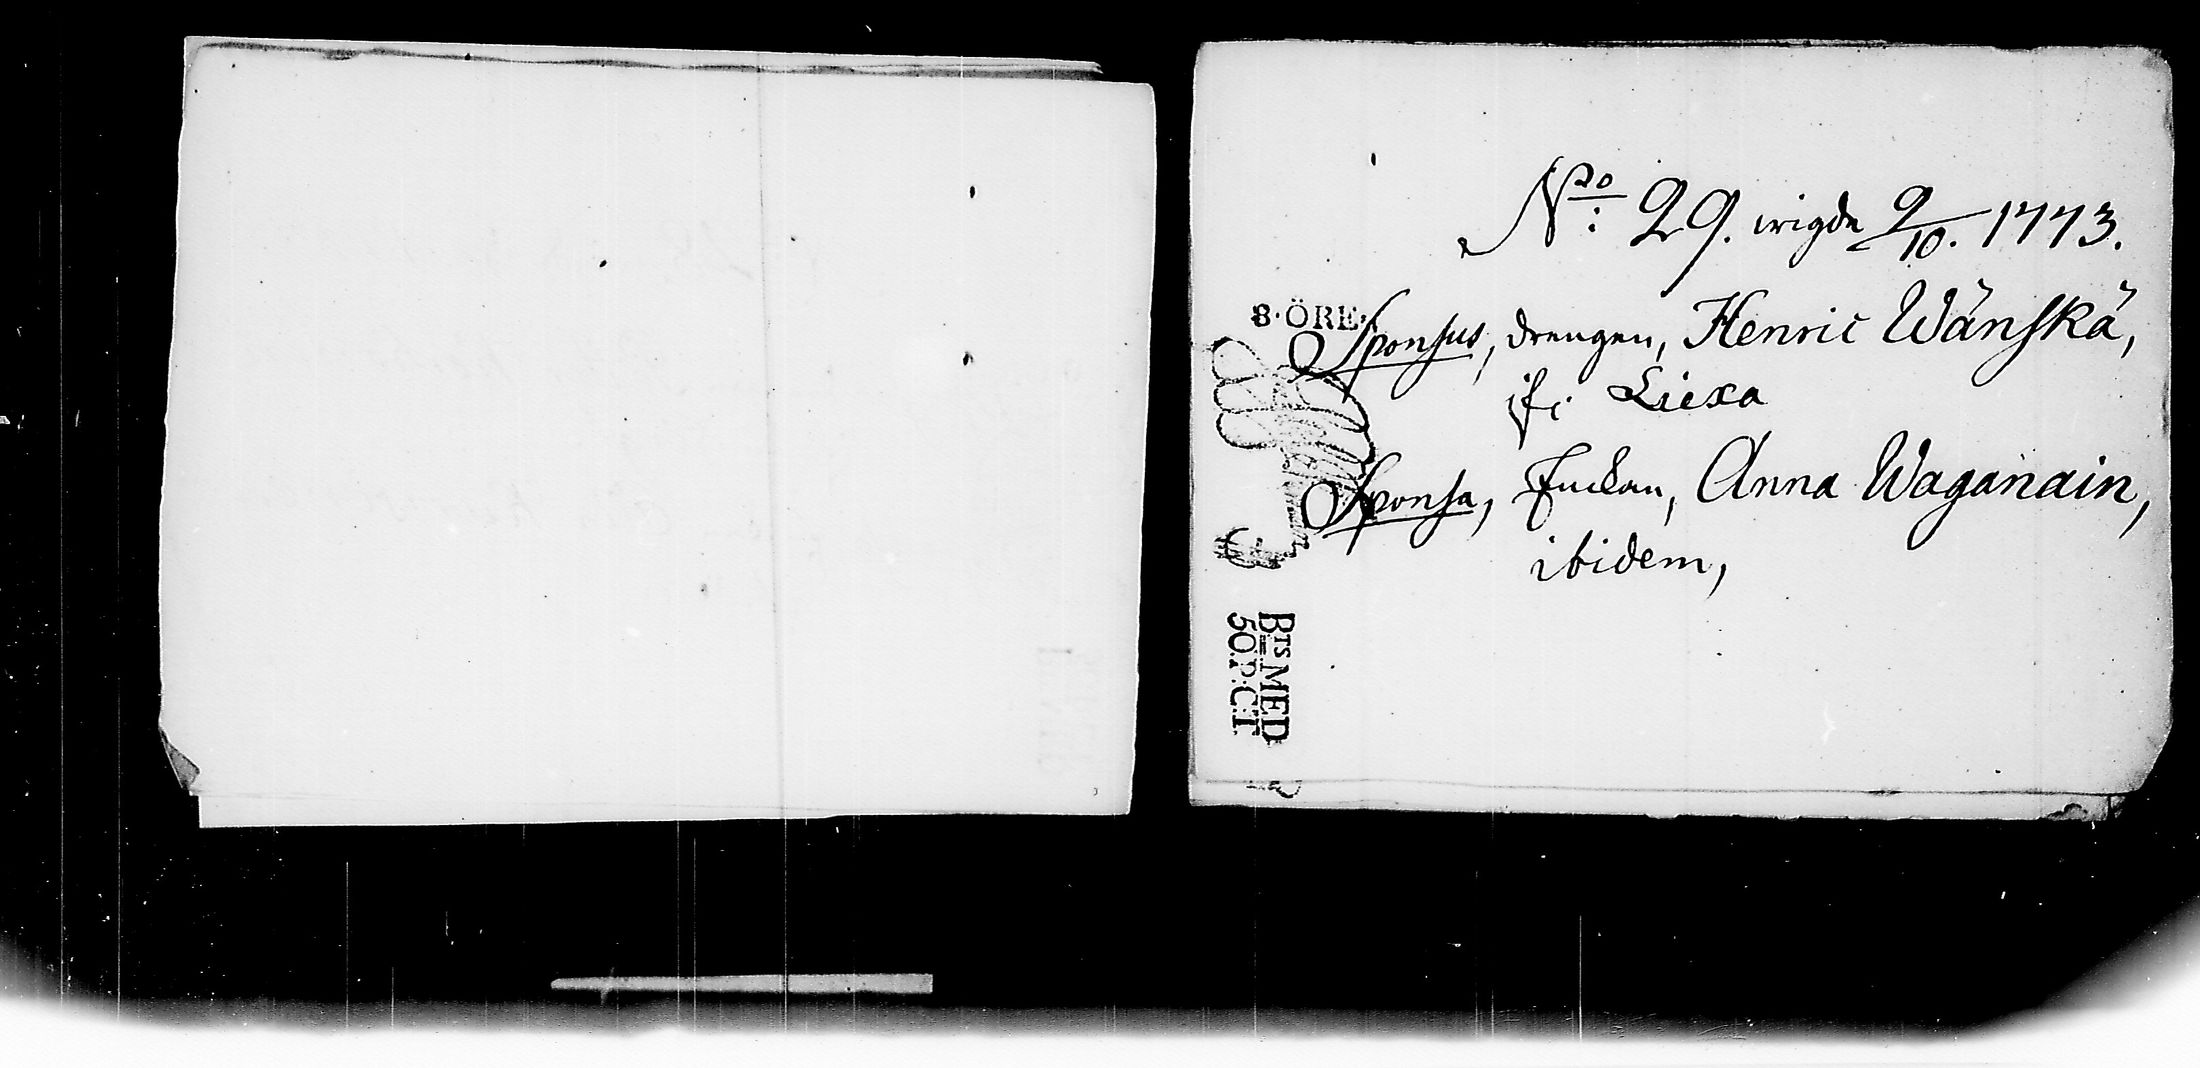 No: 29. wigde 9/10. 1773.
8·ÖRE·
Sponsus, drengen, Henric Wänskä,
ifr. Liexa
Sponsa, Enckan, Anna Waganain,
ibidem,
BTS MED
50.P:CT